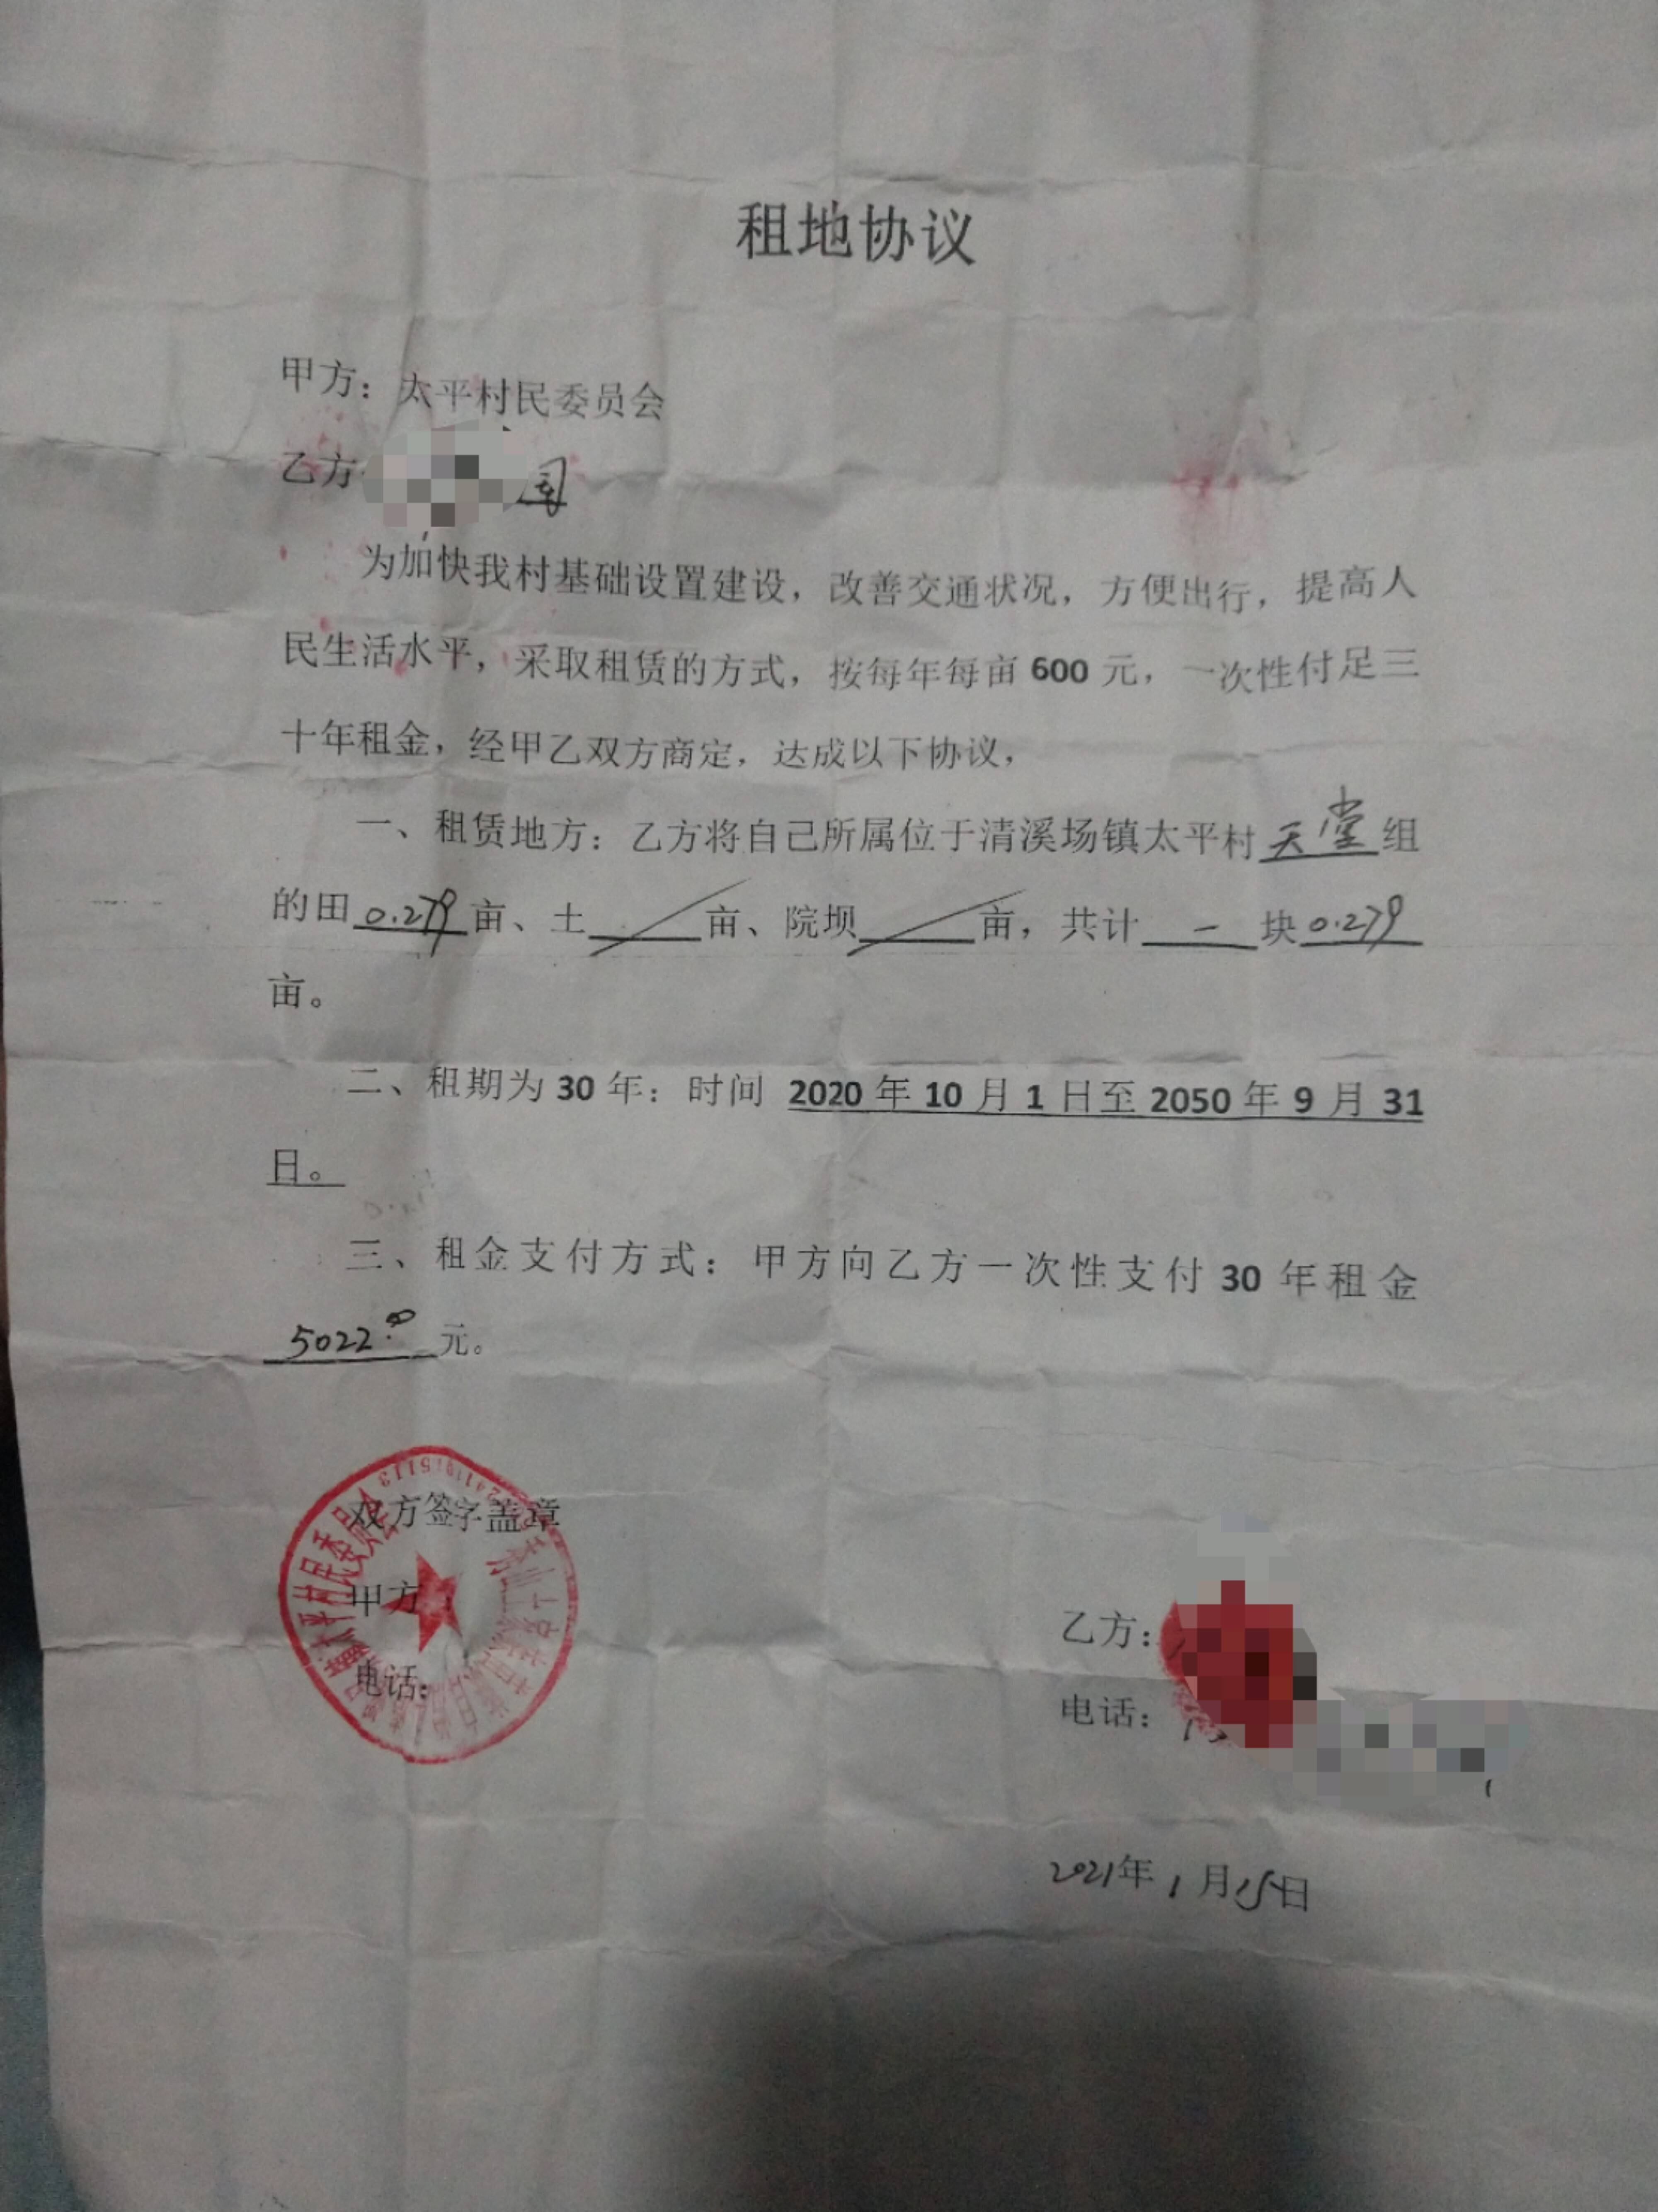 租地协议
甲方：太平村民委员会
乙方
为加快我村基础设置建设，改善交通状况，方便出行，提高人
民生活水平，采取租赁的方式，按每年每亩600元，一次性付足三
十年租金，经甲乙双方商定，达成以下协议，
一、租赁地方：乙方将自己所属位于清溪场镇太平村天堂组
的田0.279亩、土 亩、院坝 亩，共计一块0.279
亩。
二、租期为30年：时间 2020年10月1日至2050年9月31
日。
三、租金支付方式：甲方向乙方一次性支付30年租金
5022.00元。
双方签字盖章
甲方：
电话：
太平村村民委员会
乙方：
电话：
2021年1月15日